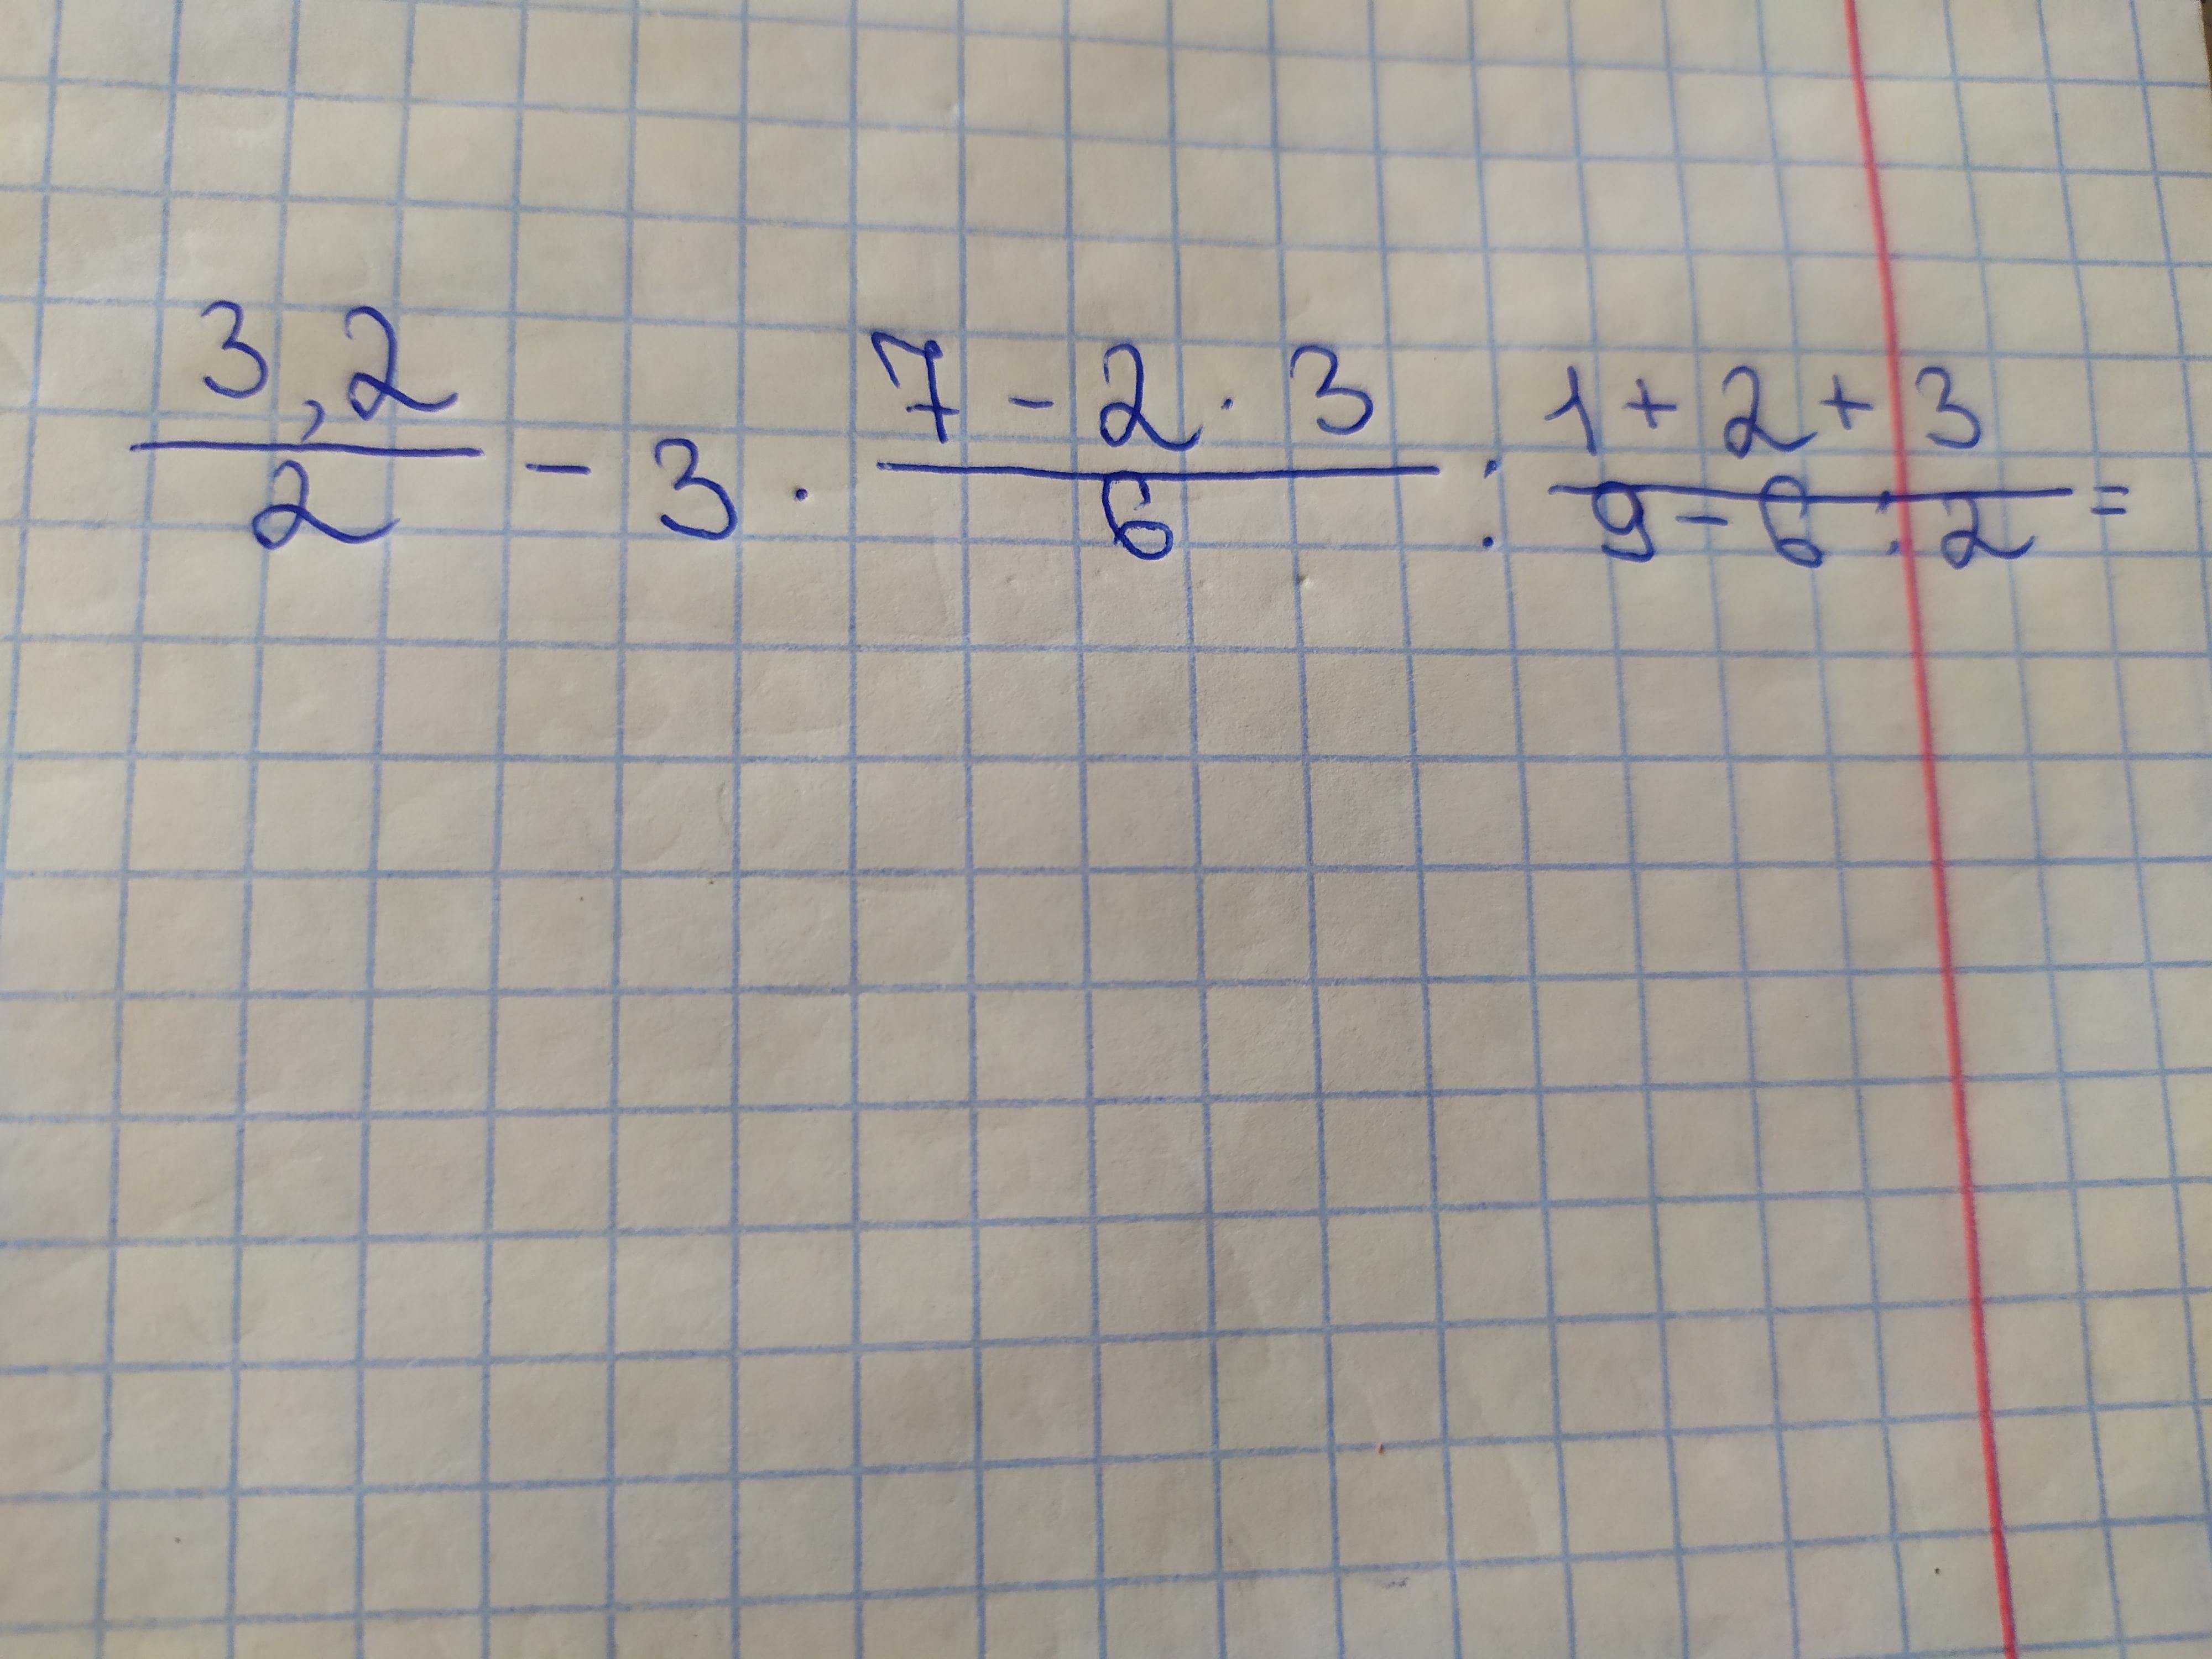 3,2/2 - 3 · (7 - 2 · 3)/6 : (1 + 2 + 3)/(9 - 6 : 2) =